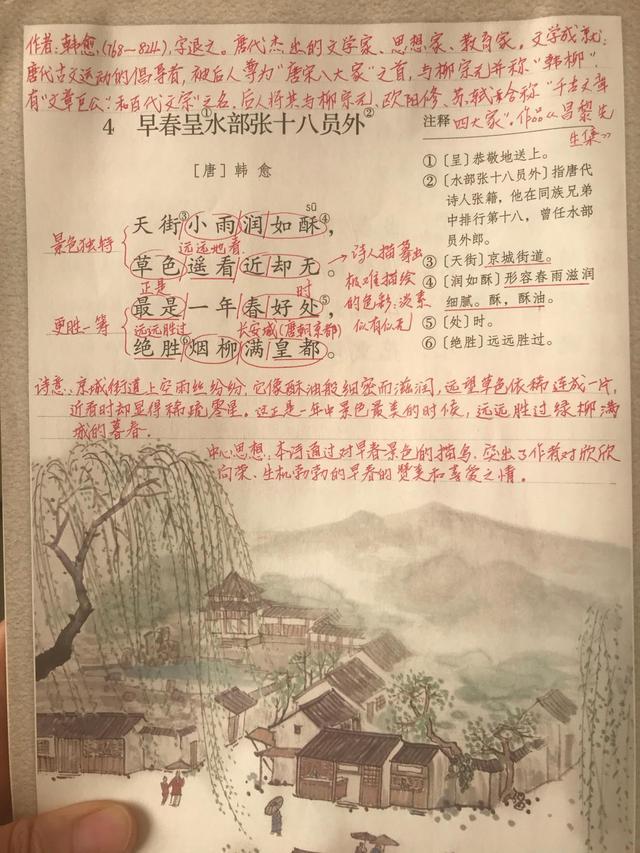 作者:韩愈,(768—824),字退之。唐代杰出的文学家、思想家、教育家。文学成就:
唐代古文运动的倡导者,被后人尊为“唐宋八大家”之首,与柳宗元并称“韩柳”
有“文章巨公”和百代文宗”之名。后人将其与柳宗元、欧阳修、苏轼合称“千古文章
四大家”。作品《昌黎先
生集》
4 早春呈①水部张十八员外②
[唐] 韩 愈
注释
①〔呈〕恭敬地送上。
②〔水部张十八员外〕指唐代
诗人张籍,他在同族兄弟
中排行第十八,曾任水部
员外郎。
③〔天街〕京城街道。
④〔润如酥〕形容春雨滋润
细腻。酥,酥油。
⑤〔处〕时。
⑥〔绝胜〕远远胜过。
sū
天街③小雨润如酥④,
远远地看
景色独特
草色遥看近却无。
正是
时
最是一年春好处⑤,
更胜一筹
远远胜过
长安城(唐朝京都)
绝胜⑥烟柳满皇都。
诗人描摹出
极难描绘
的色彩:淡素
似有似无
诗意:京城街道上空雨丝纷纷,它像酥油般细密而滋润,远望草色依稀连成一片,
近看时却显得稀疏零星。这正是一年中景色最美的时候,远远胜过绿柳满
城的暮春.
中心思想:本诗通过对早春景色的描写,突出了作者对欣欣
向荣、生机勃勃的早春的赞美和喜爱之情。